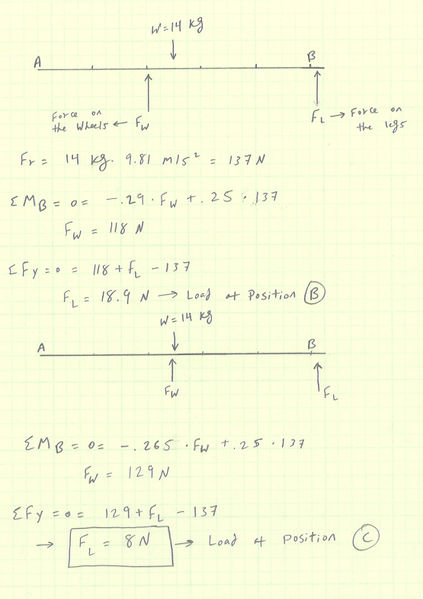 W=14 kg
A B
Force on
the wheels ← FW
FL → Force on
the legs
Fr = 14 kg · 9.81 m/s² = 137 N
ΣMB = 0 = -.29 · FW + .25 · 137
FW = 118 N
ΣFy = 0 = 118 + FL - 137
FL = 18.9 N → Load at Position B
W=14 kg
A B
FW FL
ΣMB = 0 = -.265 · FW + .25 · 137
FW = 129 N
ΣFy = 0 = 129 + FL - 137
→ FL = 8 N → Load at position C